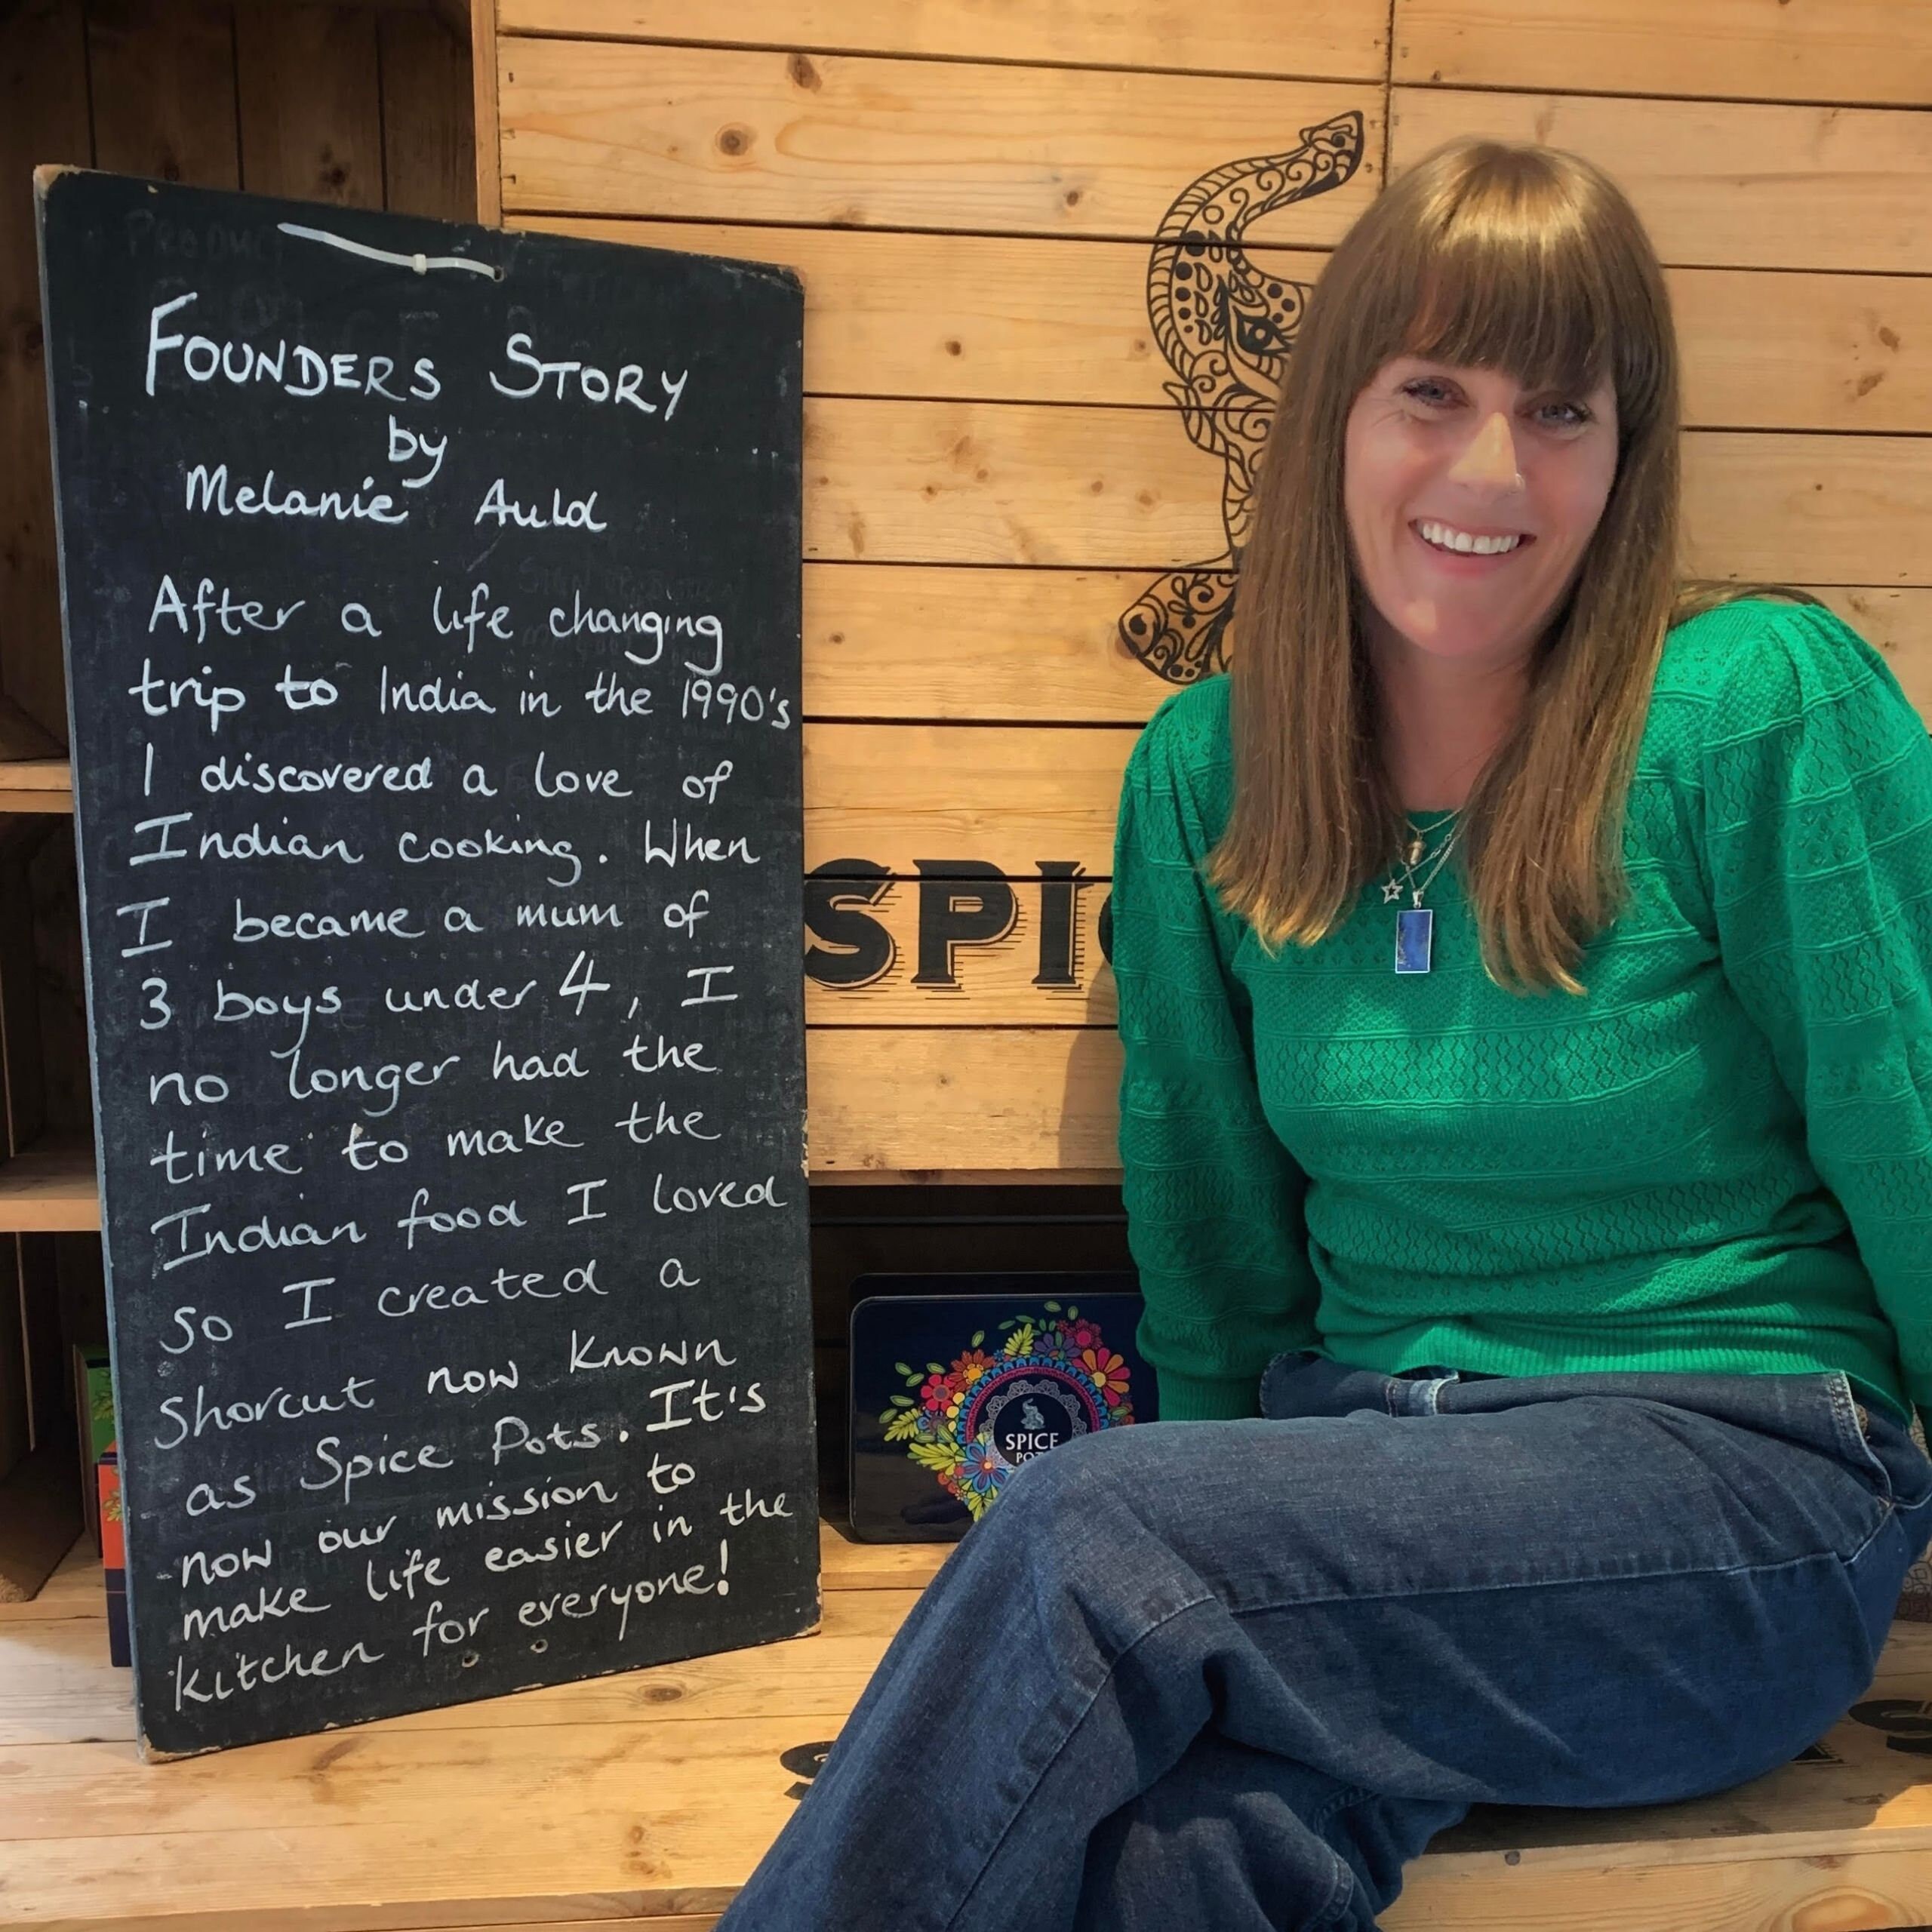 FOUNDERS STORY
by
Melanie Auld
After a life changing
trip to India in the 1990's
I discovered a love of
Indian cooking. When
I became a mum of
3 boys under 4, I
no longer had the
time to make the
Indian food I loved
so I created a
Shorcut now known
as Spice Pots. It's
now our mission to
make life easier in the
kitchen for everyone!
SPI
SPICE